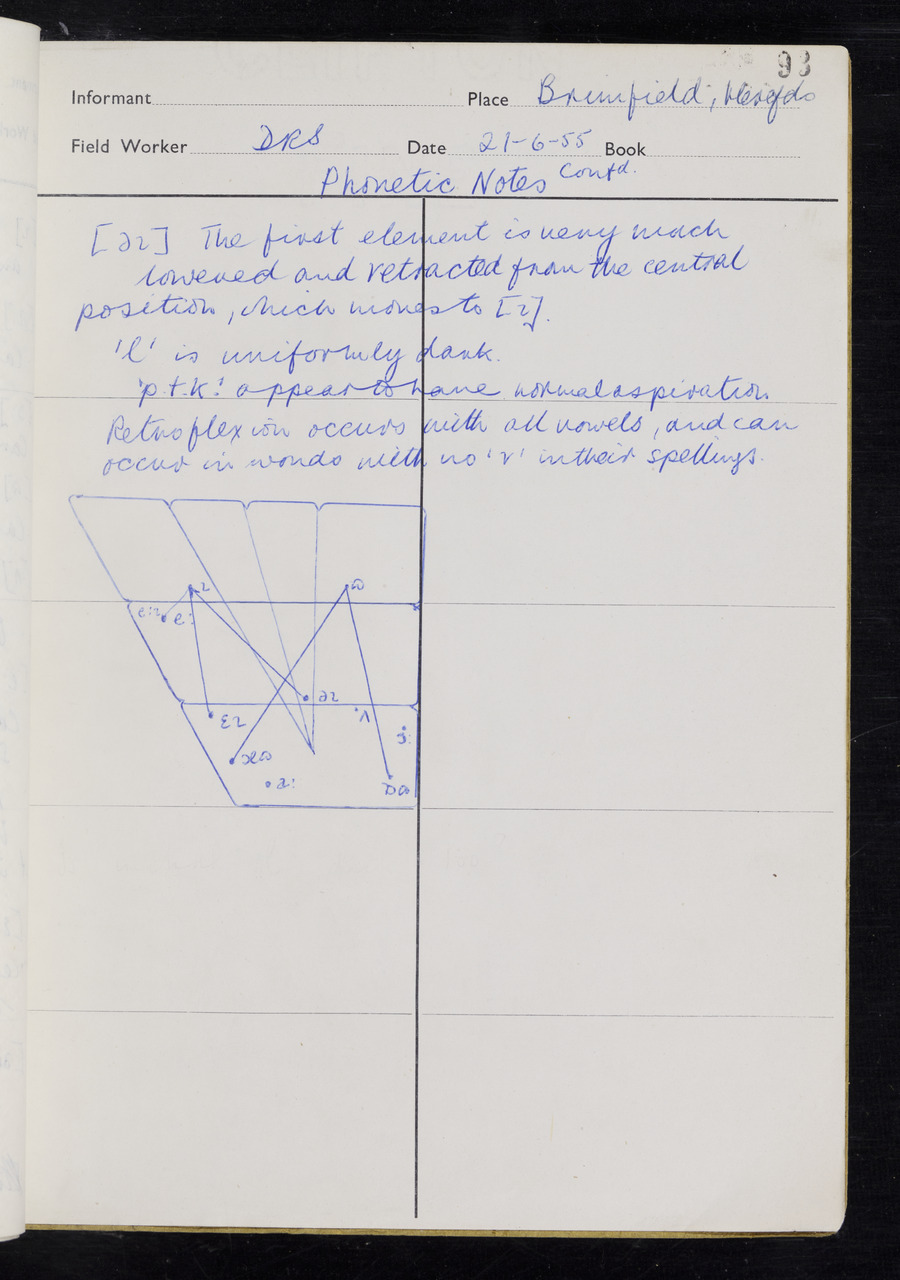 93
Informant Place Brimfield, Herefds
Field Worker DRS Date 21-6-55 Book
Phonetic Notes Contd.
[əɪ] The first element is very much
lowered and retracted from the central
position, which moves to [ɪ].
'l' is uniformly dark.
'p.t.k.' appear to have normal aspiration
Retroflexion occurs with all vowels, and can
occur in words with no 'r' in their spellings.
ɪ ω
e:ɪ e:
əɪ
ɛɪ ʌ
ɔ:
æω
a: ɒω